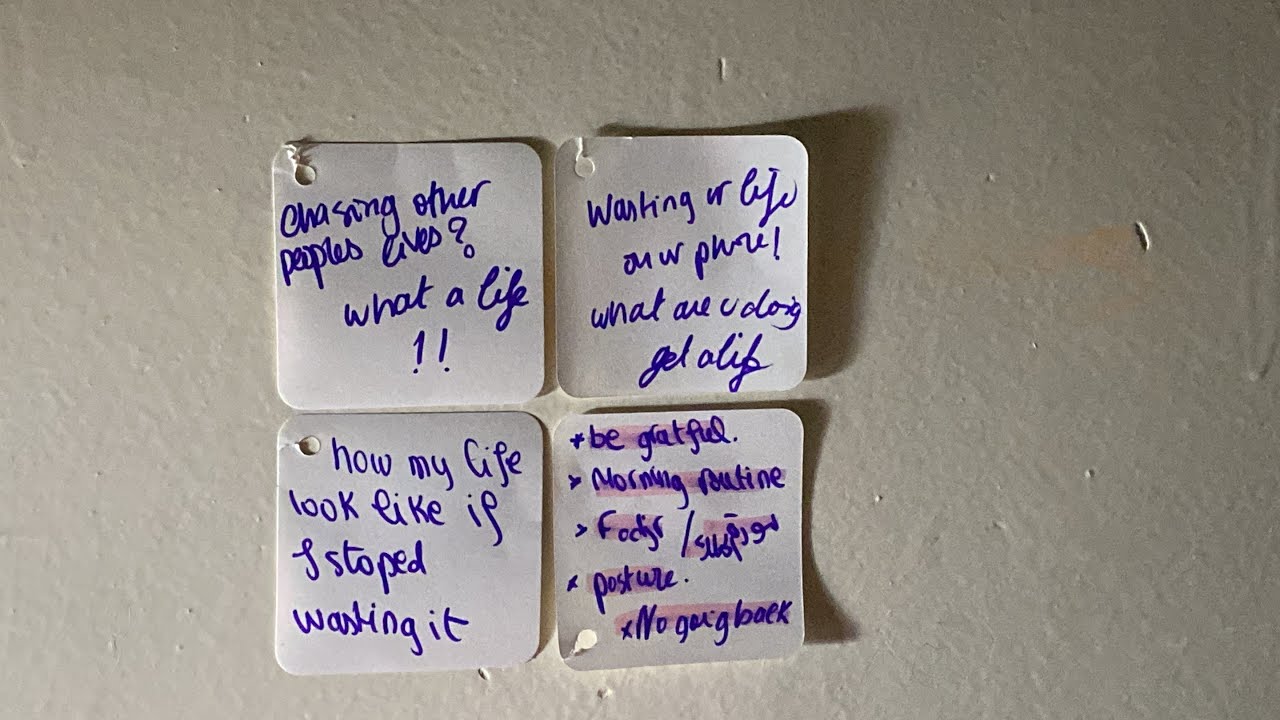 chasing other
peoples lives?
what a life
!!
Wasting ur life
on ur phone!
what are u doing
get a life
how my life
look like if
I stoped
wasting it
* be gratful.
> Morning routine
> /
* posture.
x No going back